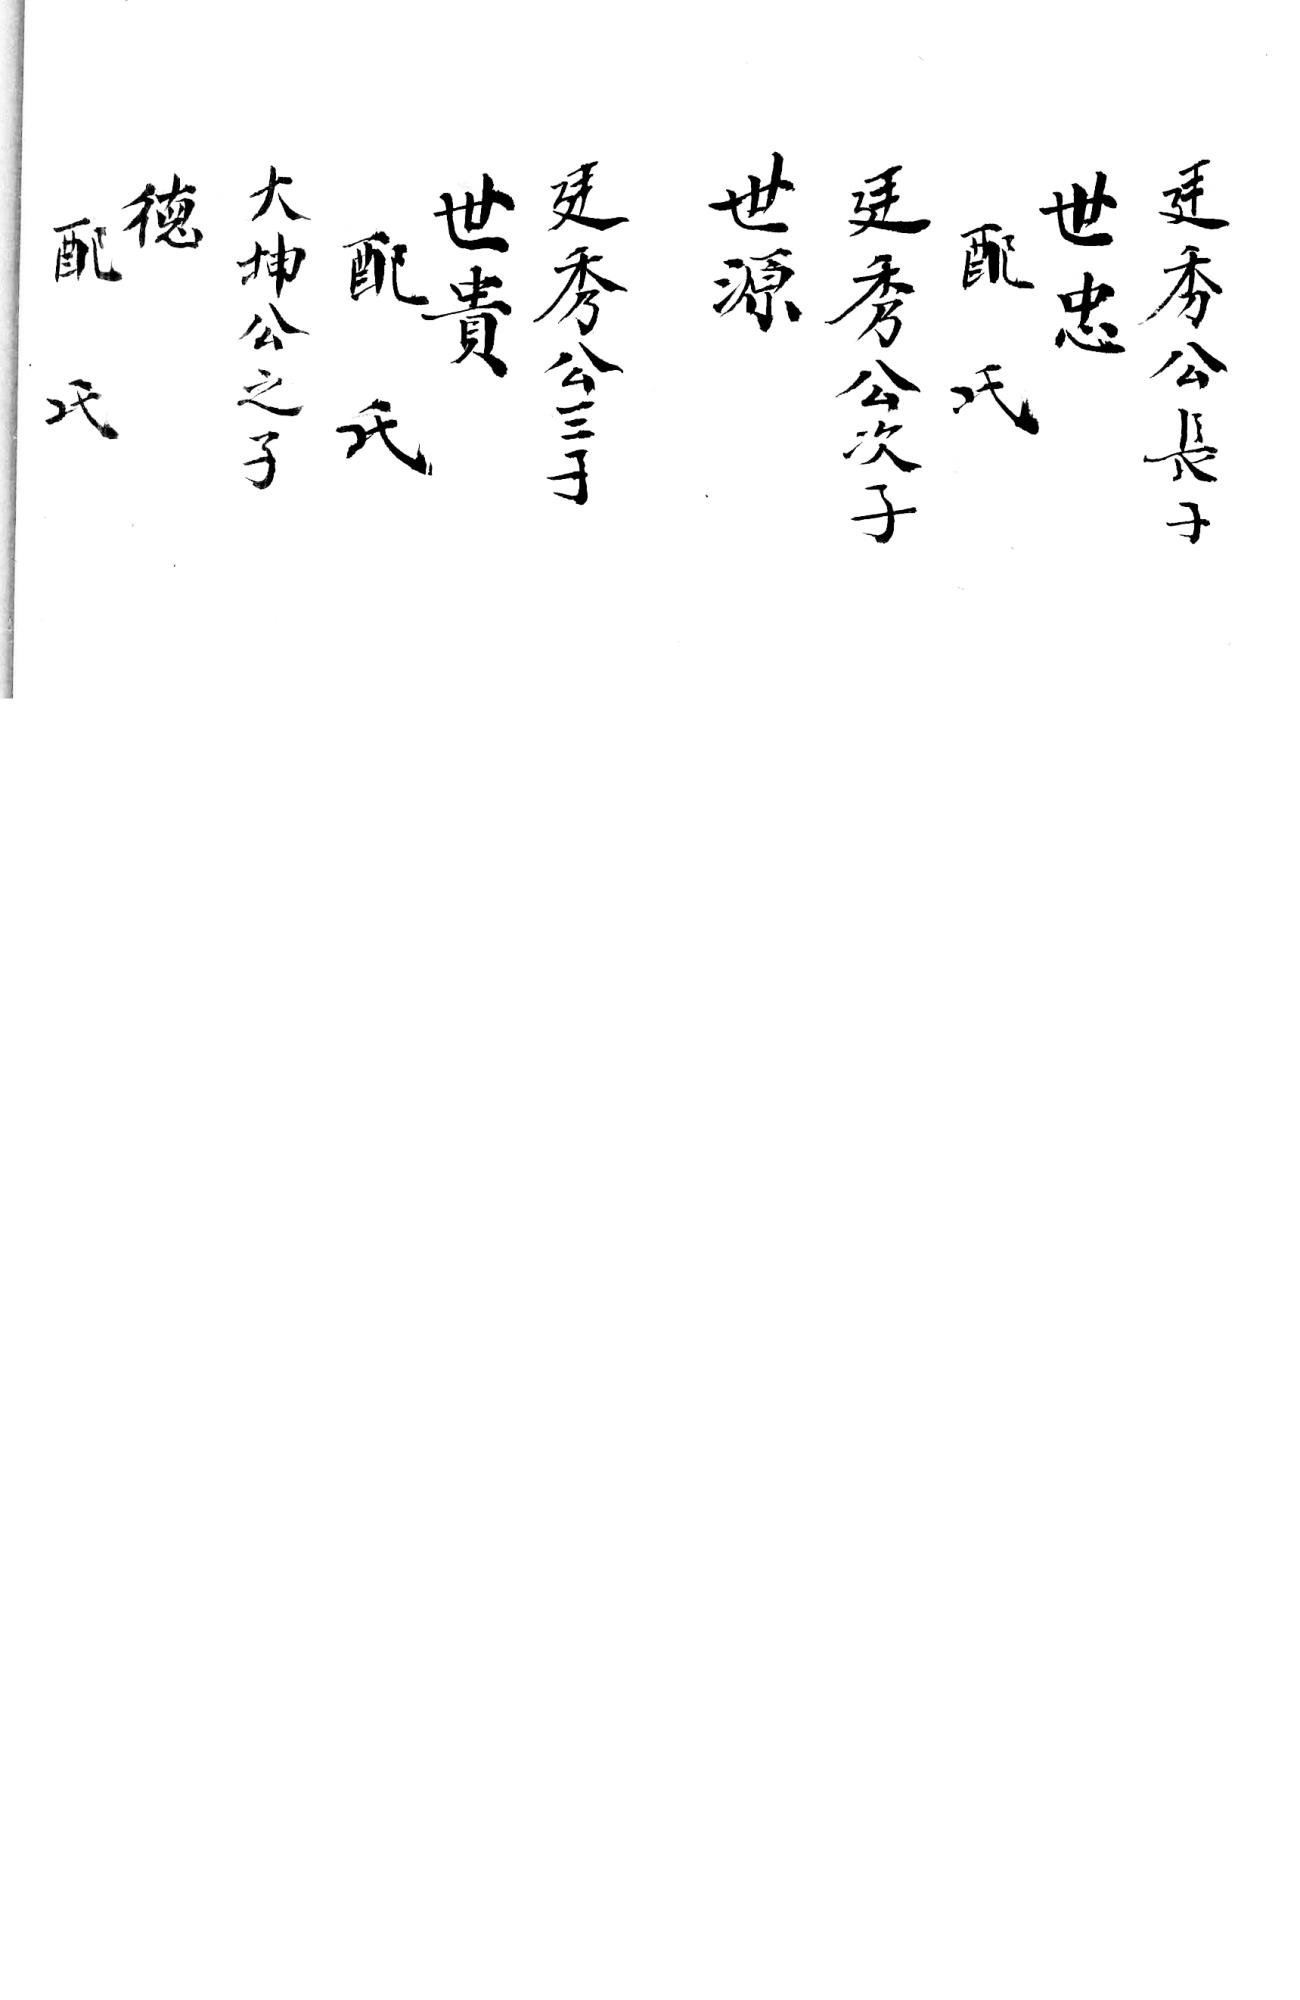 廷秀公長子
世忠
配 氏
廷秀公次子
世源
廷秀公三子
世貴
配 氏
大坤公之子
德
配 氏